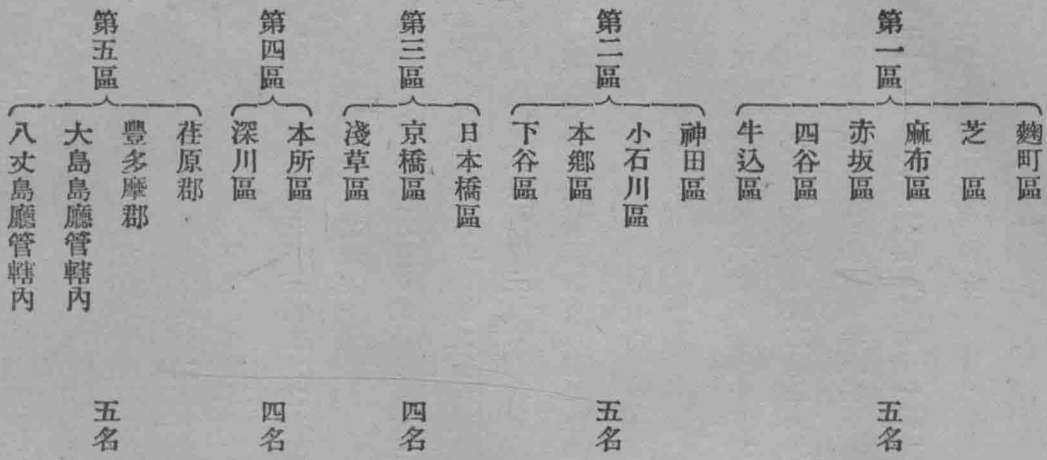 第一區
麴町區
芝區
麻布區
赤坂區
四谷區
牛込區
五名
第二區
神田區
小石川區
本鄕區
下谷區
五名
第三區
日本橋區
京橋區
淺草區
四名
第四區
本所區
深川區
四名
第五區
荏原郡
豐多摩郡
大島島廳管轄內
八丈島廳管轄內
五名